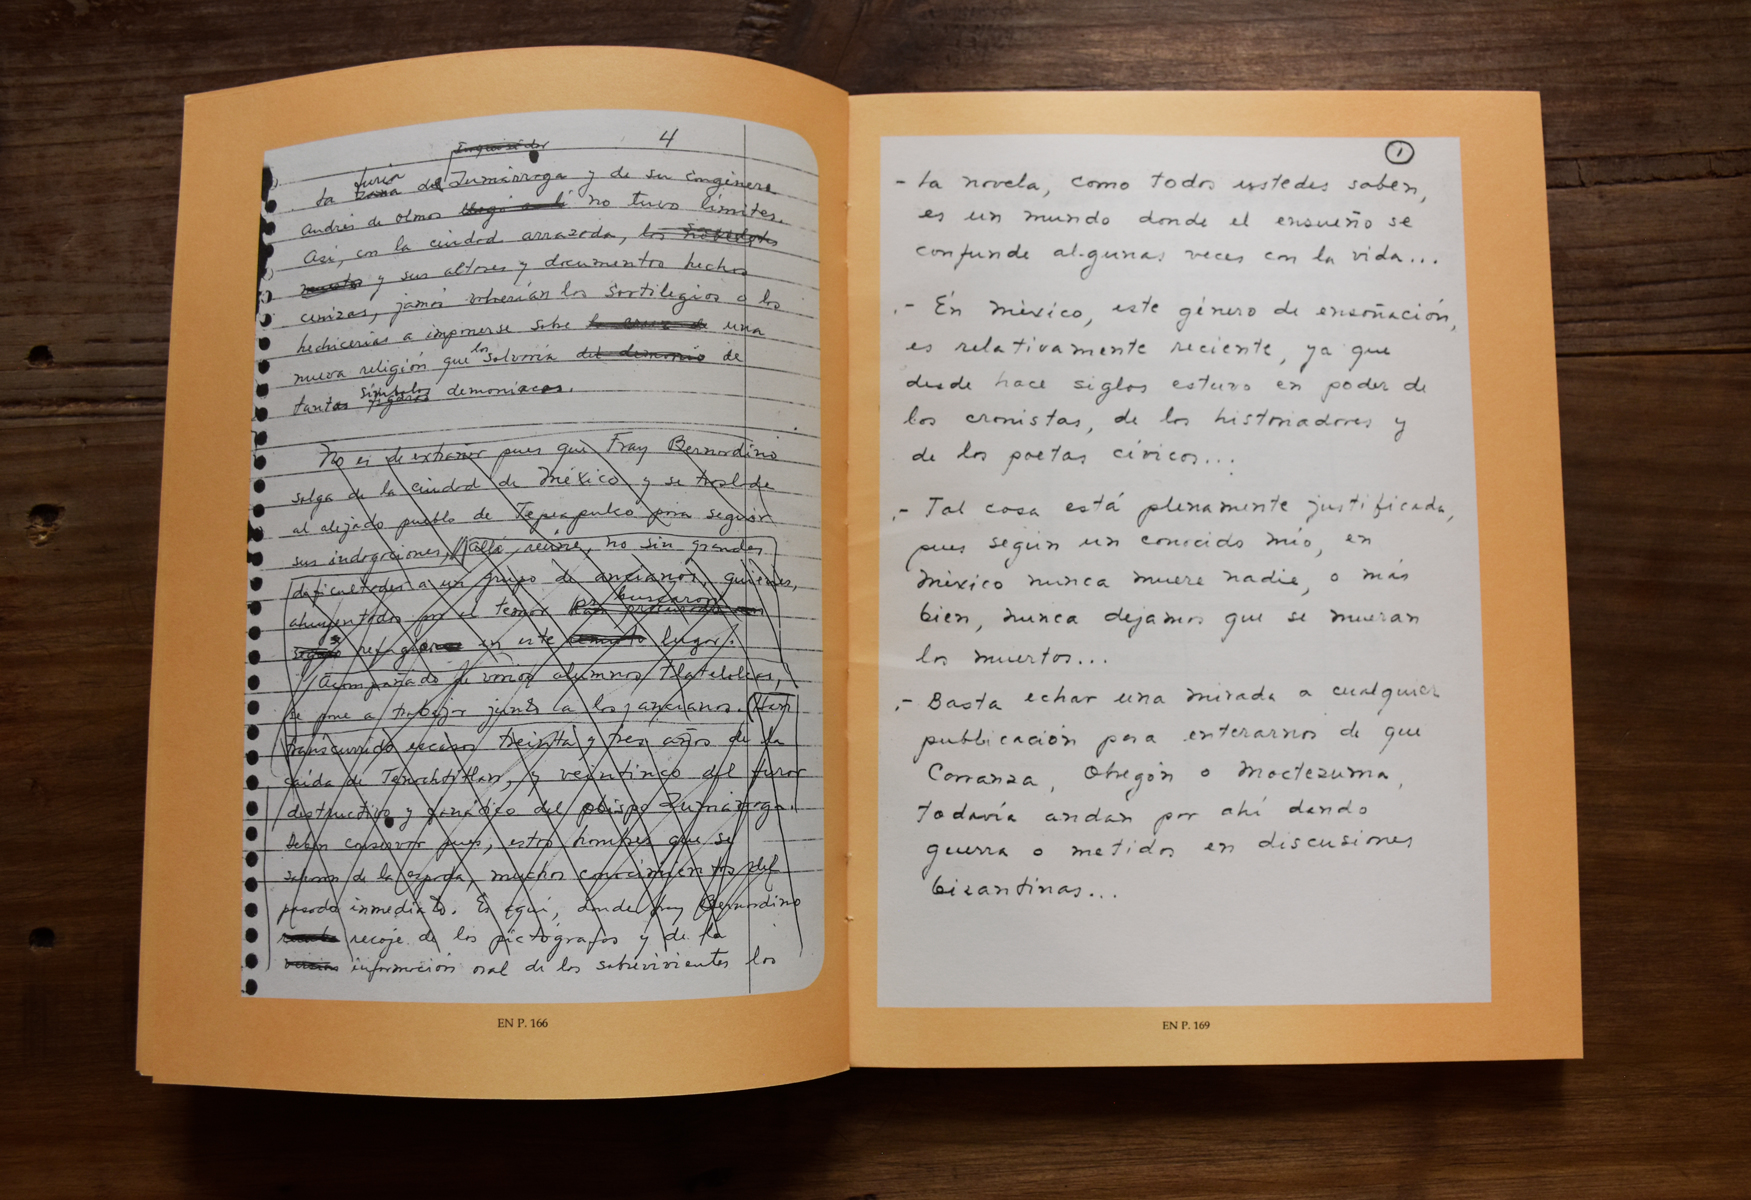 4
Inquisidor
furia
La zaña del Zumárroga y de su congénere
Andrés de Olmos no tuvo límites.
Así, con la ciudad arrazada, los
y sus altares y documentos hechos
cenizas, jamás volverían los sortilegios o las
hechicerias a imponerse sobre una
nueva religión que los salvaría del demonio de
símbolos
tantas figuras demoníacas.
No es de extrañar pues que Fray Bernardino
salga de la ciudad de México y se traslade
al alejado pueblo de Tepeapulco para seguir
sus indagaciones, allá reúne, no sin grandes
dificultades a un grupo de ancianos, quienes,
ahuyentados por el temor buscaron
refugio en este lugar.
Acompañado de varios alumnos tlatelolcas,
se pone a trabajar junto a los ancianos. Han
transcurrido escasos treinta y tres años de la
caída de Tenochtitlan, y veinticinco del furor
destructivo y fanático del obispo Zumárroga.
Deben conservar pues, estos hombres que se
salvaron de la espada, muchos conocimientos del
pasado inmediato. Es aquí, donde fray Bernardino
recoje de los pictógrafos y de la
información oral de los sobrevivientes los
EN P. 166
1
- La novela, como todos ustedes saben,
es un mundo donde el ensueño se
confunde algunas veces con la vida...
.- En México, este género de ensoñación,
es relativamente reciente, ya que
desde hace siglos estuvo en poder de
los cronistas, de los historiadores y
de los poetas cívicos...
.- Tal cosa está plenamente justificada,
pues según un conocido mío, en
México nunca muere nadie, o más
bien, nunca dejamos que se mueran
los muertos...
.- Basta echar una mirada a cualquier
publicación para enterarnos de que
Carranza, Obregón o Moctezuma,
todavía andan por ahí dando
guerra o metidos en discusiones
bizantinas...
EN P. 169